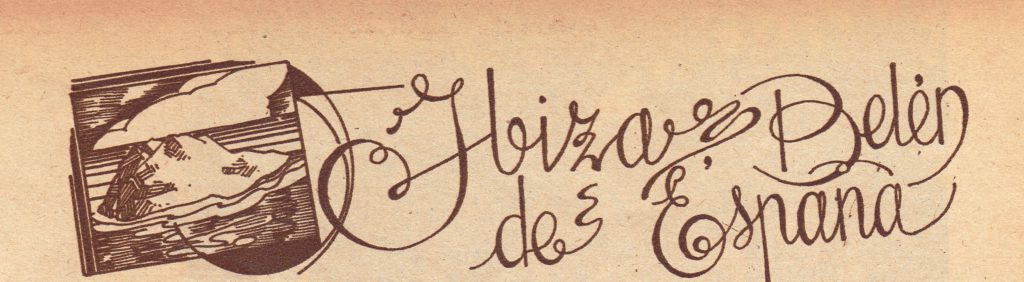 Ibiza Belén
de España